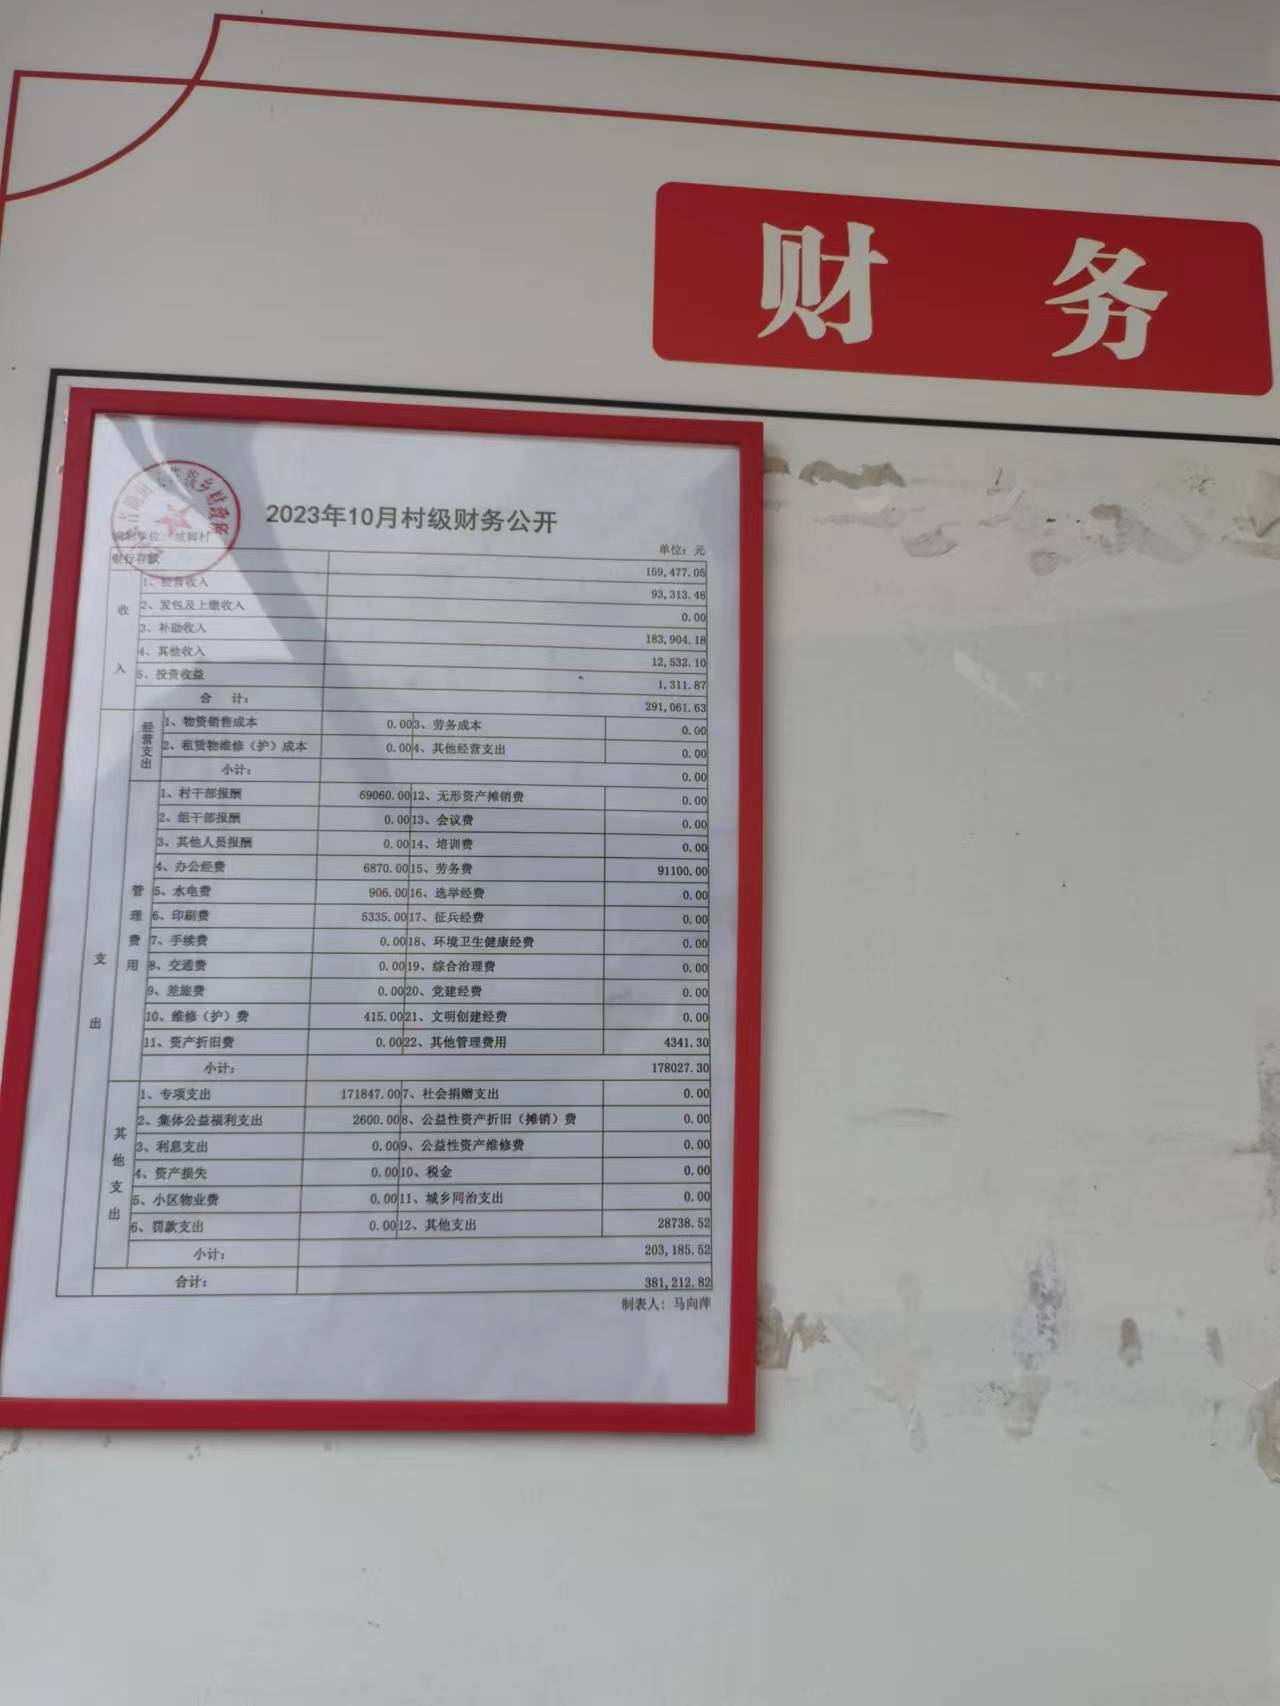 财 务
2023年10月村级财务公开
编制单位：坡脚村 单位：元
银行存款 159,477.05
收入
1、经营收入 93,313.48
2、发包及上缴收入 0.00
3、补助收入 183,904.18
4、其他收入 12,532.10
5、投资收益 1,311.87
合 计： 291,061.63
支出
经营支出
1、物资销售成本 0.00 3、劳务成本 0.00
2、租赁物维修（护）成本 0.00 4、其他经营支出 0.00
小计： 0.00
管理费用
1、村干部报酬 69060.00 12、无形资产摊销费 0.00
2、组干部报酬 0.00 13、会议费 0.00
3、其他人员报酬 0.00 14、培训费 0.00
4、办公经费 6870.00 15、劳务费 91100.00
5、水电费 906.00 16、选举经费 0.00
6、印刷费 5335.00 17、征兵经费 0.00
7、手续费 0.00 18、环境卫生健康经费 0.00
8、交通费 0.00 19、综合治理费 0.00
9、差旅费 0.00 20、党建经费 0.00
10、维修（护）费 415.00 21、文明创建经费 0.00
11、资产折旧费 0.00 22、其他管理费用 4341.30
小计： 178027.30
其他支出
1、专项支出 171847.00 7、社会捐赠支出 0.00
2、集体公益福利支出 2600.00 8、公益性资产折旧（摊销）费 0.00
3、利息支出 0.00 9、公益性资产维修费 0.00
4、资产损失 0.00 10、税金 0.00
5、小区物业费 0.00 11、城乡同治支出 0.00
6、罚款支出 0.00 12、其他支出 28738.52
小计： 203,185.52
合计： 381,212.82
制表人：马向萍